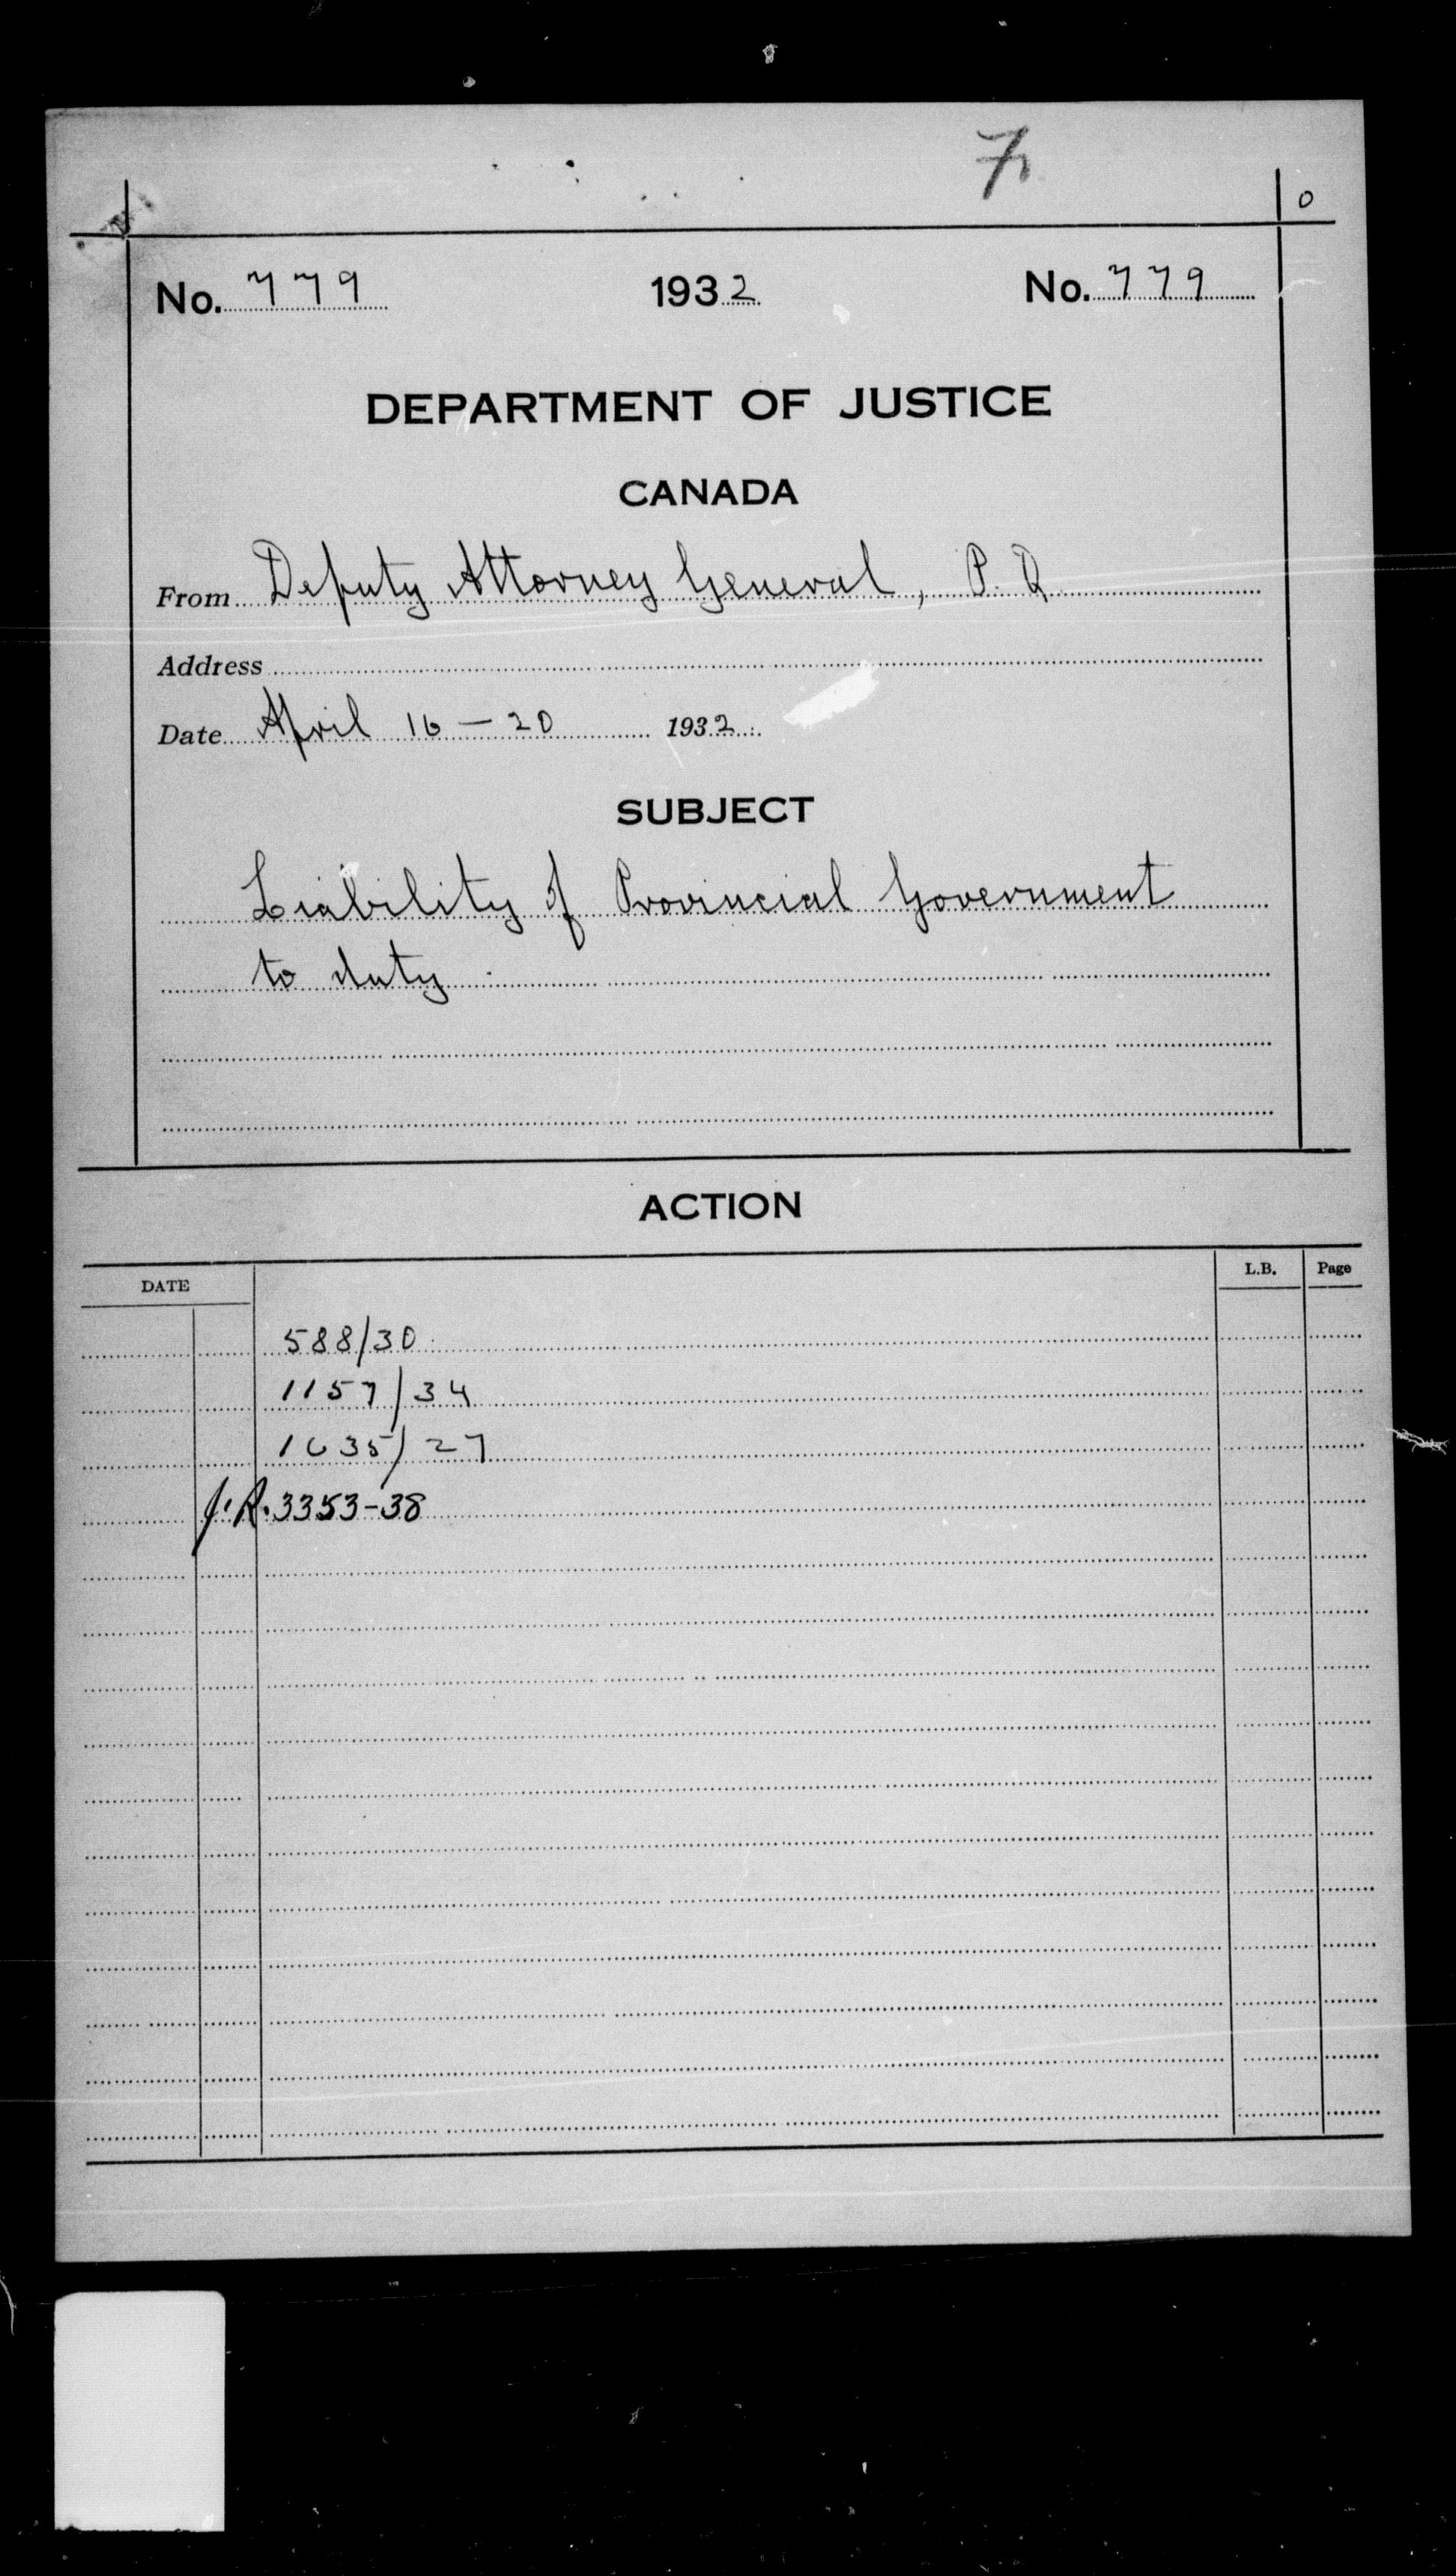 7
0
No. 779 1932 No. 779
DEPARTMENT OF JUSTICE
CANADA
From Deputy Attorney General, P. Q
Address
Date April 16 – 20 1932
SUBJECT
Liability of Provincial Government
to duty.
ACTION
DATE L.B. Page
588/30
1157/34
1635/27
J.R. 3353-38